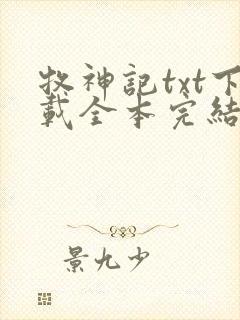 牧神記txt下
載全本完結
景九少